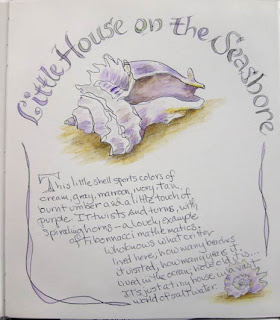 Little House on the Seashore
This little shell sports colors of
cream, gray, maroon, ivory, tan,
burnt umber and a little touch of
purple. It twists and turns, with
spiraling horns - a lovely example
of Fibonacci mathematics.
Who knows what critter
lived here, how many beaches
it visited, how many years it
was in the ocean, how old it is...
It's just a tiny house in a vast
world of salt water.